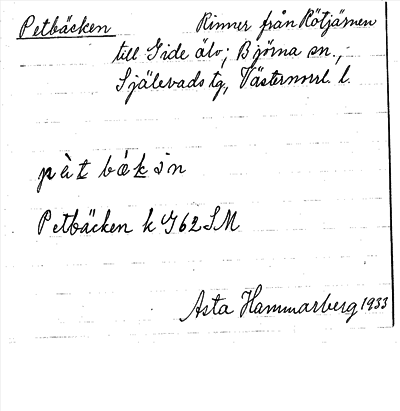 Petbäcken Rinner från Rötjärnen
till Gide älv; Björna sn.,
Själevads tg, Västernorrl. l.
Petbäcken k G62SM
Asta Hammarberg 1933